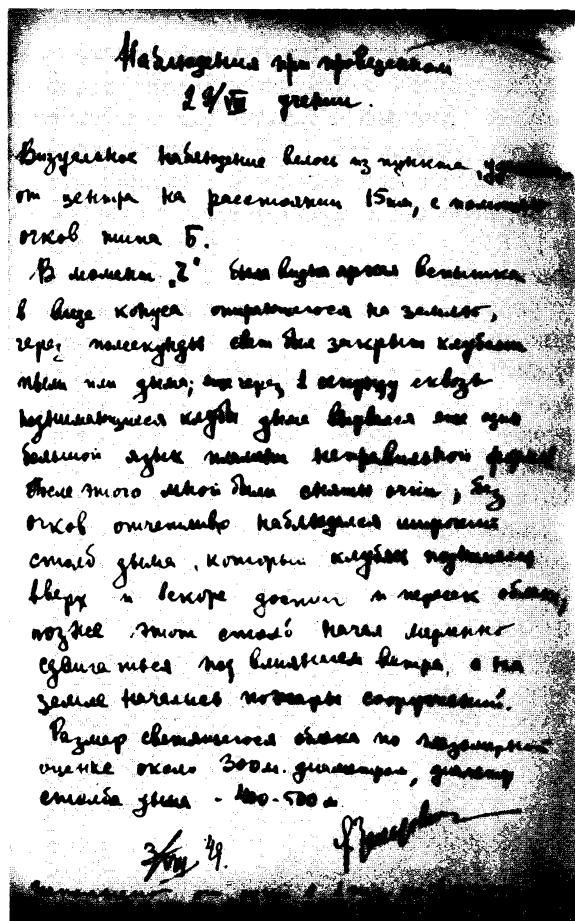 Наблюдения при проведенном
29/VIII учении.
Визуальное наблюдение велось из пункта,
от центра на расстоянии 15км, с помощью
очков типа Б.
В момент "Z" была видна яркая вспышка
в виде конуса опирающегося на землю,
через полсекунды свет был закрыт клубами
пыли или дыма; еще через 1 секунду сквозь
поднимающиеся клубы дыма вырвался еще один
большой язык пламени неправильной формы
После этого мной были сняты очки, без
очков отчетливо наблюдался широкий
столб дыма, который клубясь поднимался
вверх и вскоре достиг и пересек облака,
позже этот столб начал медленно
сдвигаться под влиянием ветра, а на
земле начались пожары сооружений.
Размер светящегося облака по глазомерной
оценке около 300м. диаметром, диаметр
столба дыма - 400-500м